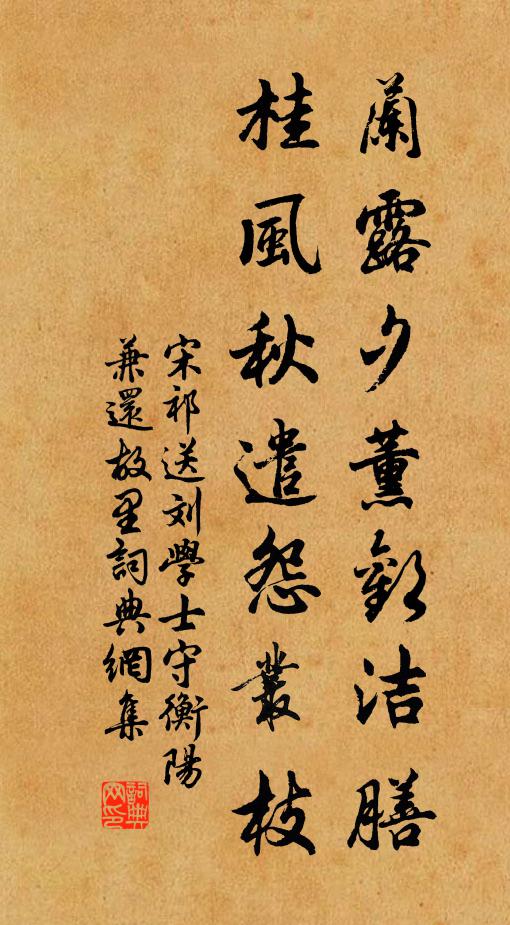 蘭露夕薰歡洁膳
桂風秋遣怨叢枝
宋祁送刘學士守衡陽
兼還故里詞典網集
詞典网印